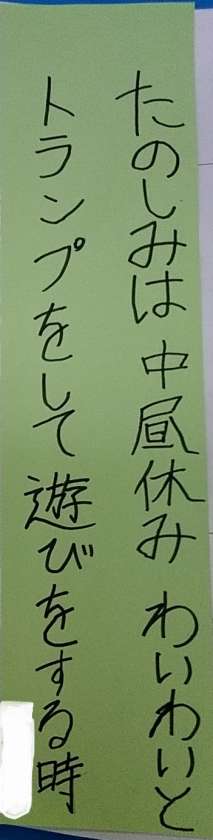 たのしみは 中昼休み わいわいと
トランプをして 遊びをする時